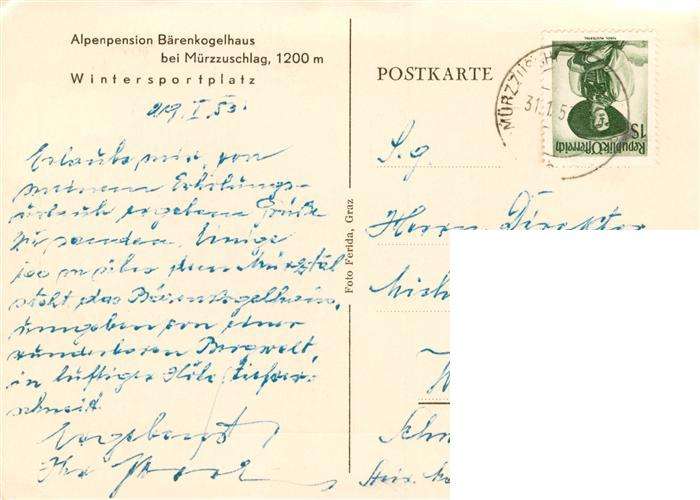 Alpenpension Bärenkogelhaus
bei Mürzzuschlag, 1200 m
Wintersportplatz
29. I. 53.
Erlaube mir, von
meinem Erholungs-
urlaub ergebene Grüße
zu senden. Einige
100 m über dem Mürztal
steht das Bärenkogelheim,
umgeben von einer
wunderbaren Bergwelt,
in luftiger Höhe, tiefver-
schneit.
Ergebenst
Ihr
Foto Ferida, Graz
POSTKARTE
MÜRZZUSCHL
31.1.5
Republik Österreich
1S
S. g.
Herrn Direktor
Mich
W
Schn